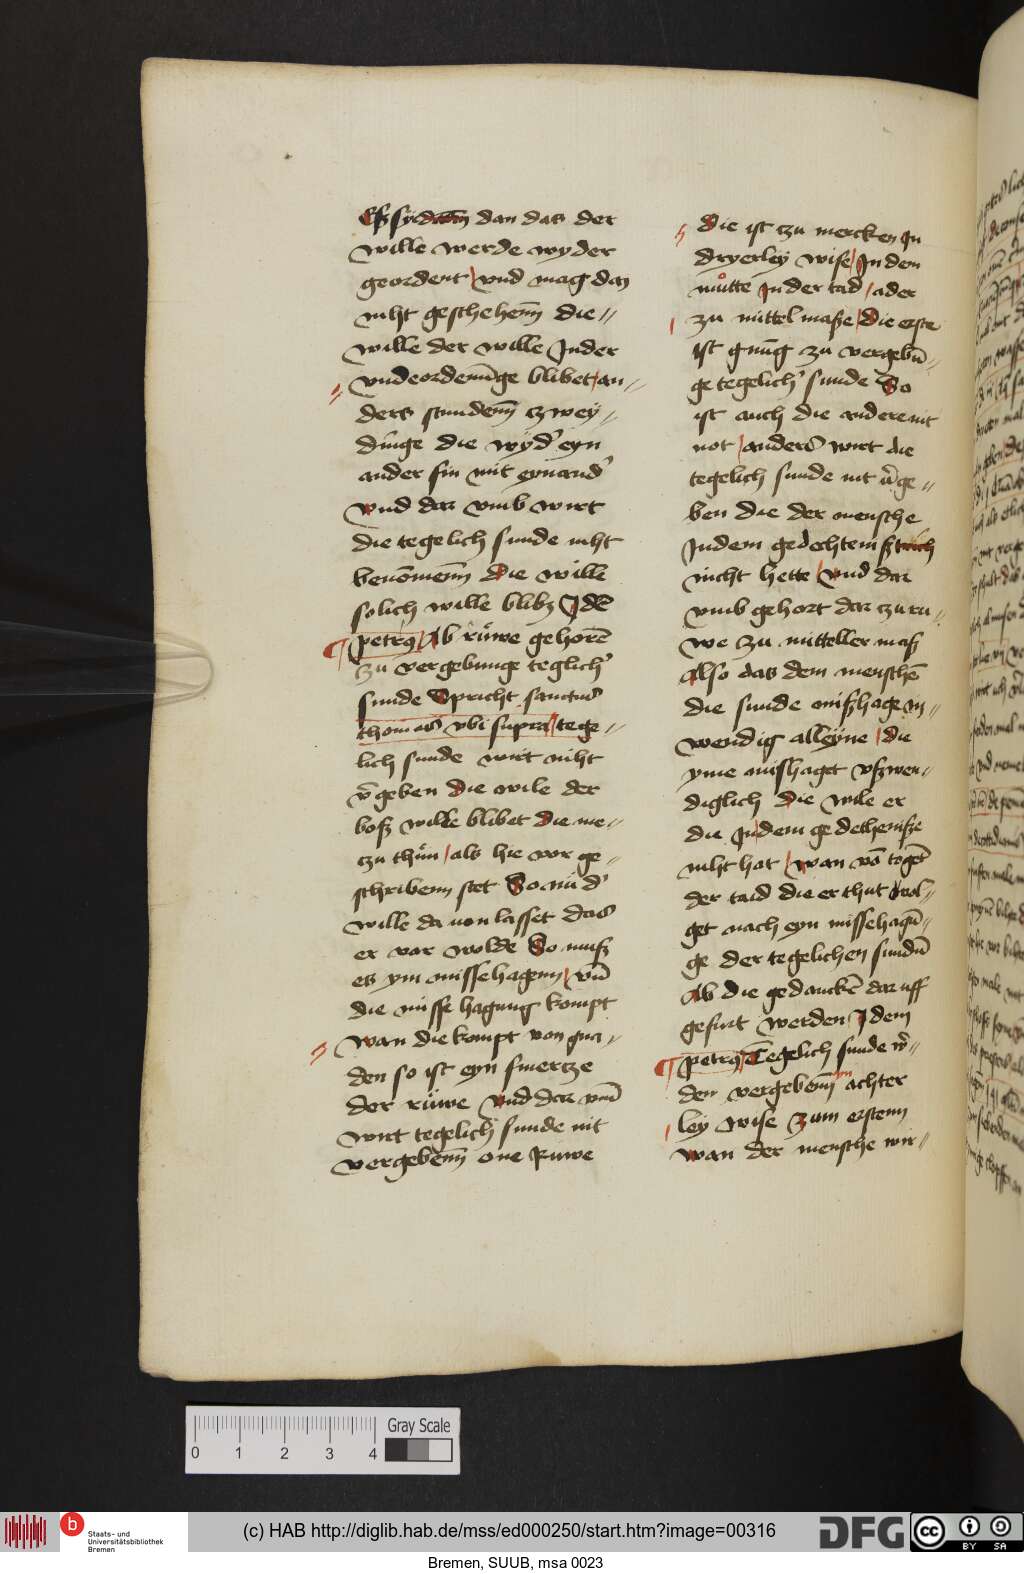 Eß sy dan das der
wille werde wyder
geordent vnd mag das
niht geschehenn die
wille der wille Jn der
vndeordenūge blibet an
ders stundenn zwey
dinge die wyd' eyn
ander sin mit eynand'
vnd dar vmb wirt
die tegelich sunde niht
benōmenn die wille
solich wille blibz Jdē
petrꝯ Ab rüwe gehorē
zu vergebunge teglich'
sunde Spricht sanctus
thomas vbi supra tege
lich sunde wirt niht
v'geben die wile der
boß wille blibet die me
zu thün als hie vor ge
schribenn stet So nu d'
wille da von lasset das
er vor wolde So muß
es ym missehagenn vn̄
die misse hagung kompt
wan die kompt von gna
den so ist eyn smertze
der rüwe vnd dar vmb
wirt tegelich sunde nit
vergebenn one Ruwe
die ist zu mercken Jn
dryerley wise Jn dem
mutte Jn der tad ader
zu mittel maße die erste
ist gnūg zu vergebū
ge tegelich' sunde So
ist auch die andere nit
not anders wirt die
tegelich sunde nit v'ge
ben die der mensche
Jn dem gedechteniß
nicht hette vnd dar
vmb gehort dar zu ru
we zu mitteller maß
Also das dem menschē
die sunde mißhage in
wendig alleyne die
yme mishaget vßwen
diglich die wile er
die Jn dem gedetheniße
niht hat wan vō
der taid die er thut vol
get nach eyn missehagū
ge der tegelichen sundū
Ab die gedanckē dar uff
gefurt werden Jdem
petrꝯ Tegelich sunde w'
den vergebenn yn achter
ley wise zum erstenn
wan der mensche wir
0 1 2 3 4
Gray Scale
b
Staats- und
Universitätsbibliothek
Bremen
(c) HAB http://diglib.hab.de/mss/ed000250/start.htm?image=00316
DFG
cc
BY SA
Bremen, SUUB, msa 0023